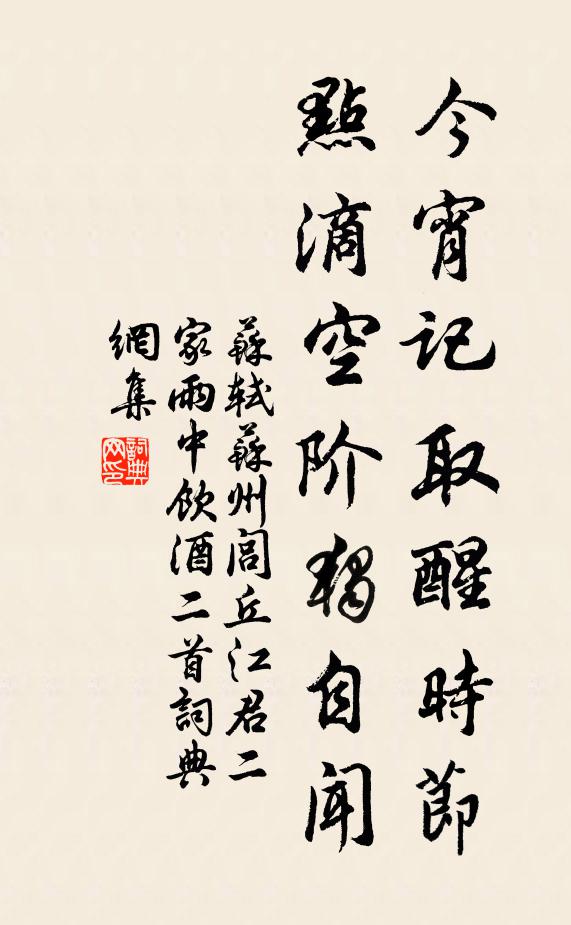 今宵記取醒時節
點滴空阶獨自聞
蘇軾蘇州閭丘江君二
家雨中飲酒二首詞典
網集
詞典網印